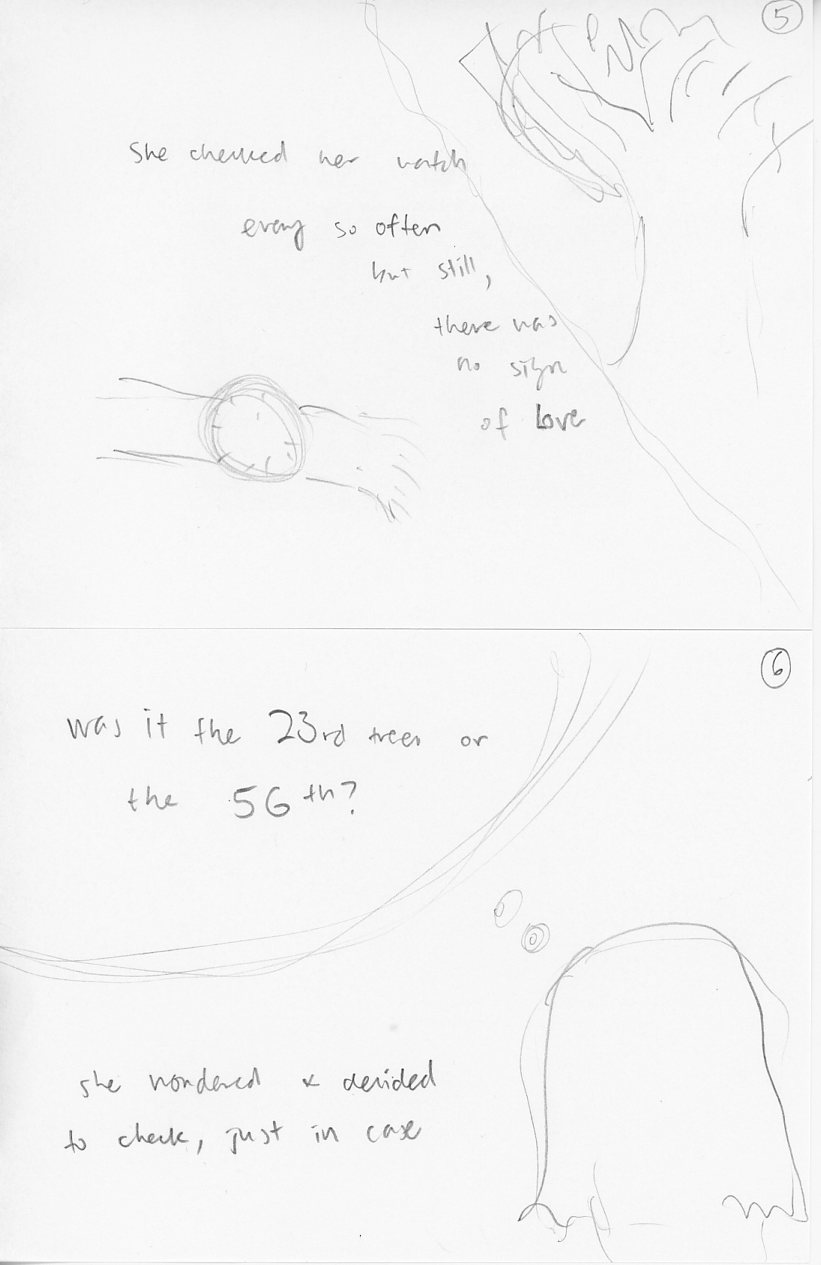 5
She checked her watch
every so often
but still,
there was
no sign
of love
6
was it the 23rd tree or
the 56th?
she wondered & decided
to check, just in case